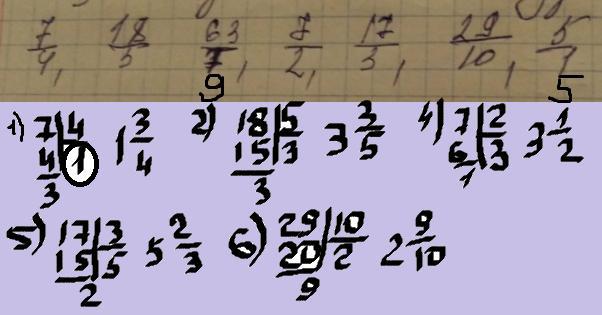 7/4, 18/5 63/7, 7/2, 17/3, 29/10, 5/1
9 5
1) 7|4 1 3/4 2) 18|5 3 3/5 4) 7|2 3 1/2
4|1 15|3 6|3
3 3 1
5) 17|3 5 2/3 6) 29|10 2 9/10
15|5 20|2
2 9